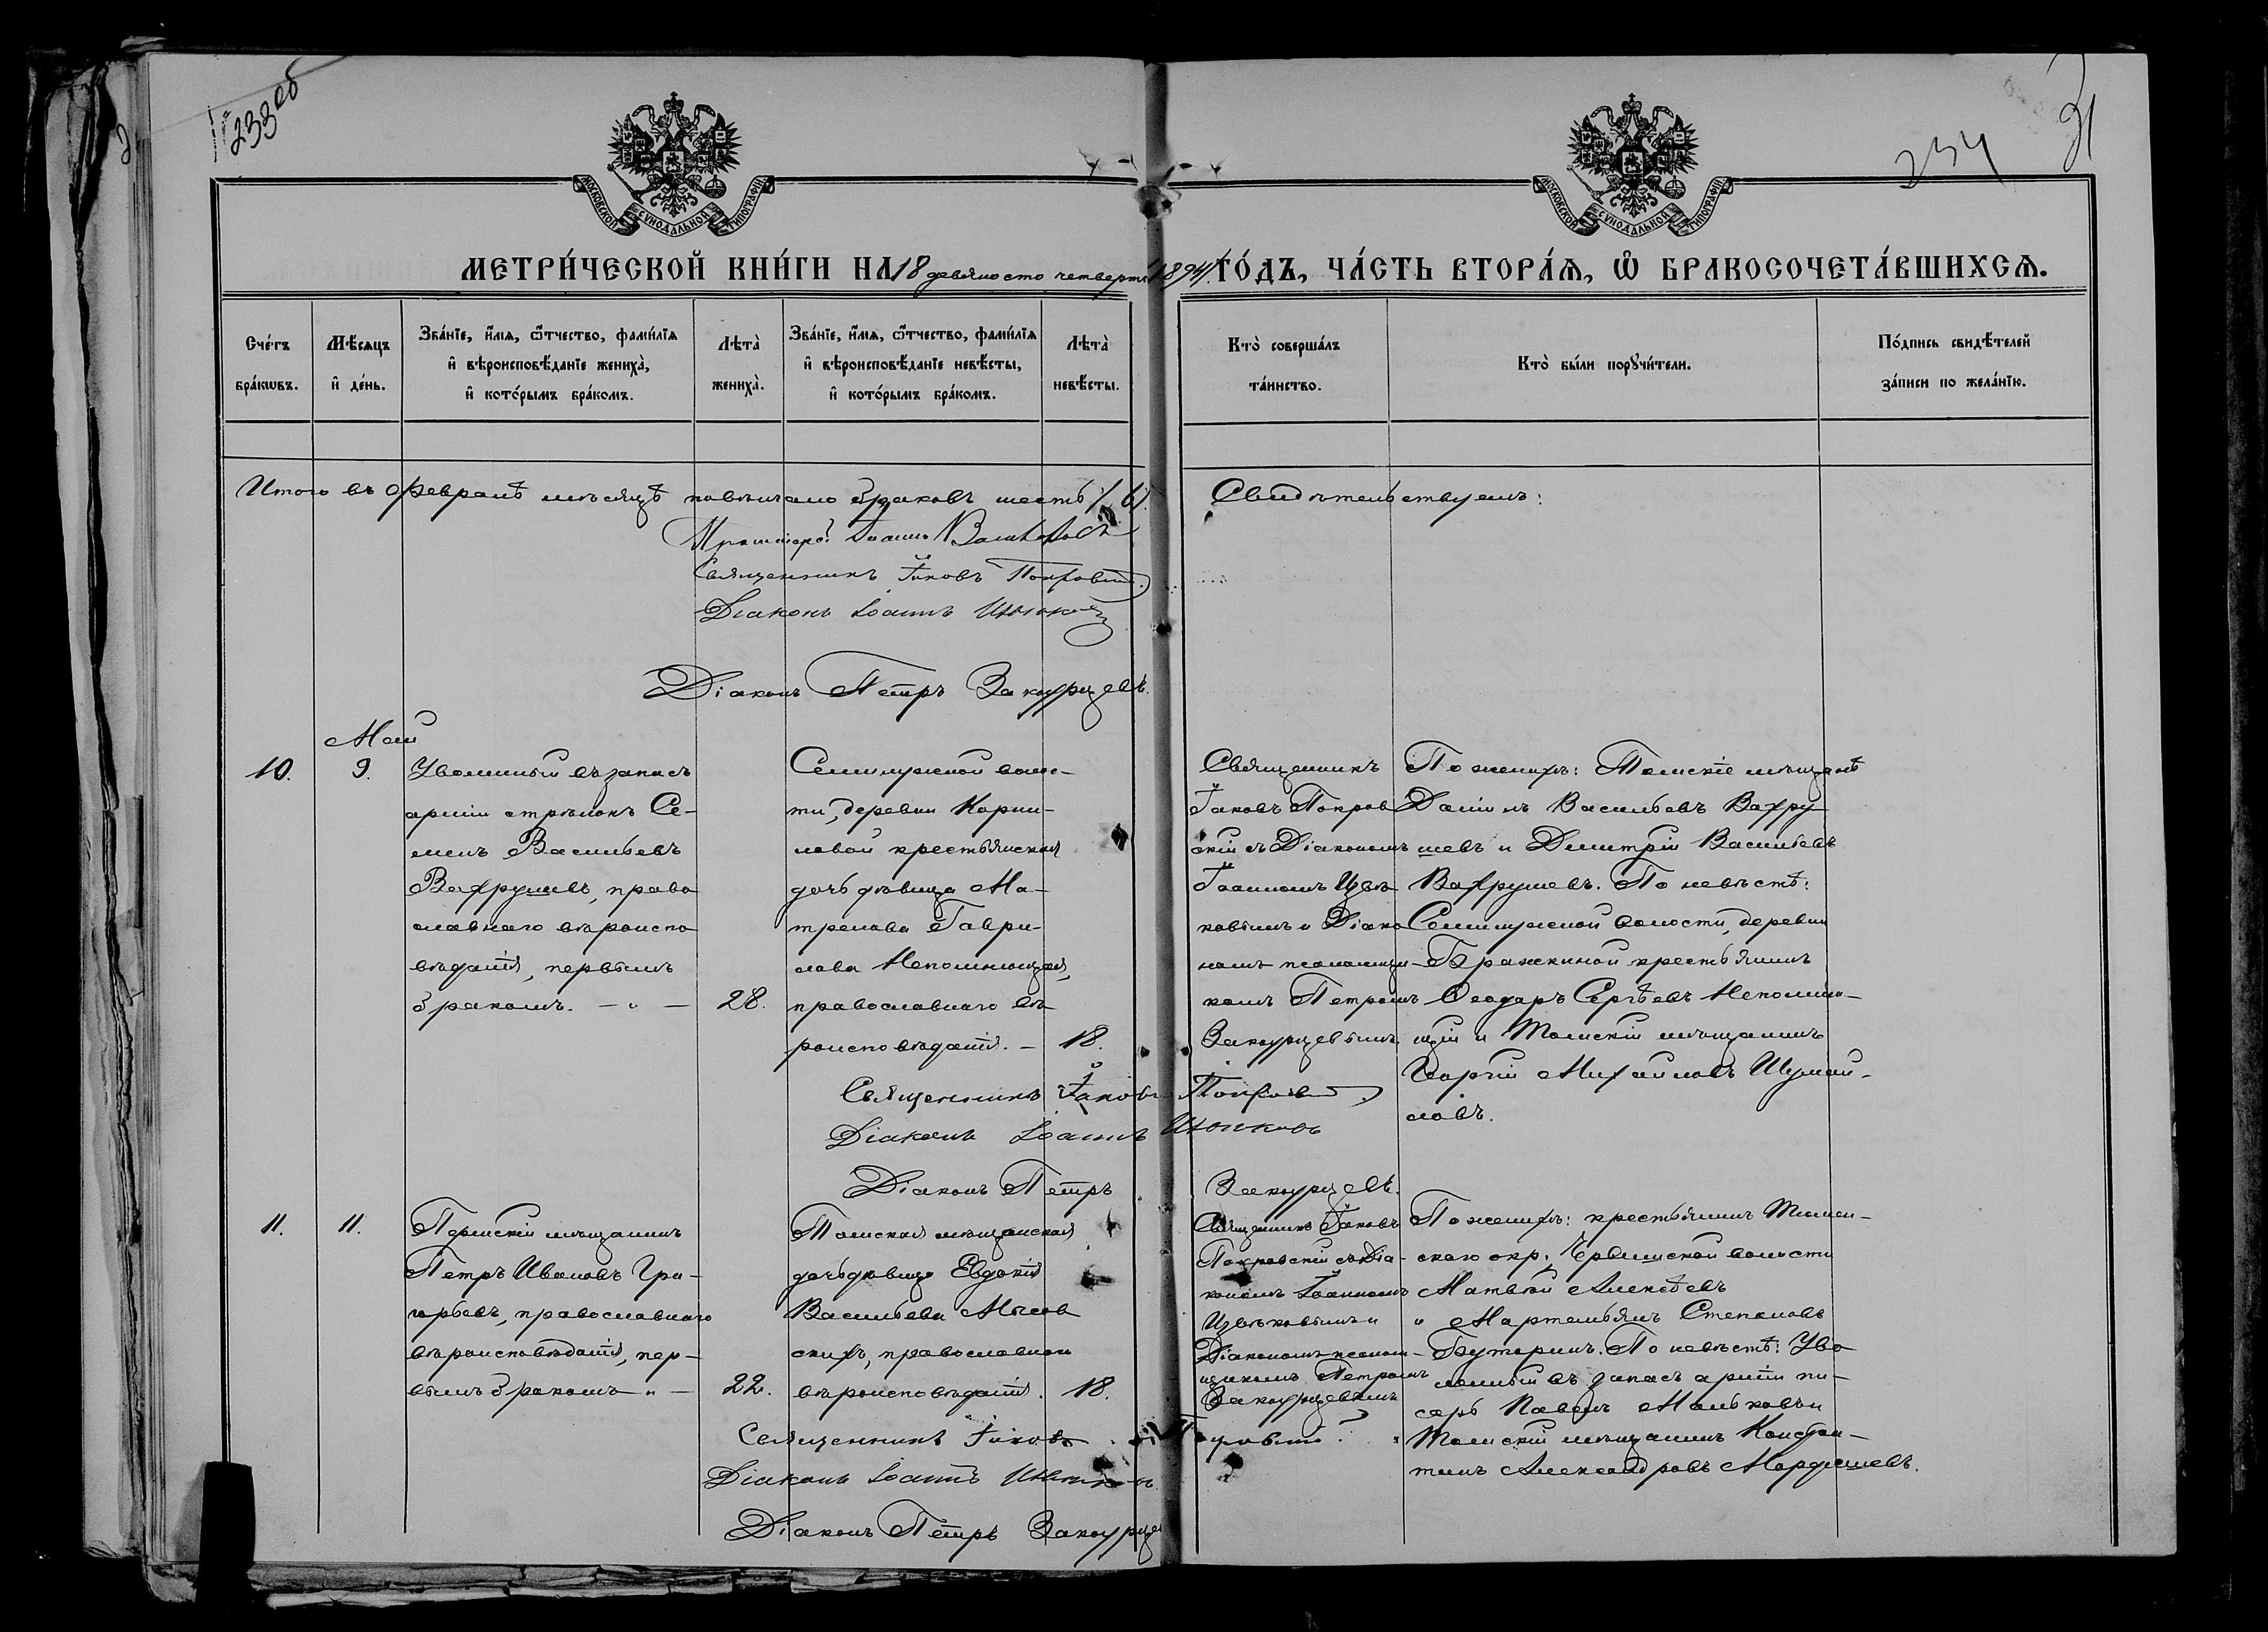 233 об
234
31
МОСКОВСКОЙ СѴНОДАЛЬНОЙ ТИПОГРАФІИ
МОСКОВСКОЙ СѴНОДАЛЬНОЙ ТИПОГРАФІИ
МЕТРИ́ЧЕСКОЙ КНИ́ГИ НА 18 девяносто четверт 1894 ГО́ДЪ, ЧА́СТЬ ВТОРА́Ѧ, Ѽ БРАКОСОЧЕТА́ВШИХСѦ.
Сче́тъ
бра́кѡвъ.
Мѣ́сѧцъ
и҆ де́нь.
Зва́нїе, и҆́мѧ, ѻ҆́тчество, фами́лїѧ
и҆ вѣроисповѣ́данїе жениха̀,
и҆ кото́рымъ бра́комъ.
Лѣта̀
жениха̀.
Зва́нїе, и҆́мѧ, ѻ҆́тчество, фами́лїѧ
и҆ вѣроисповѣ́данїе невѣ́сты,
и҆ кото́рымъ бра́комъ.
Лѣта̀
невѣ́сты.
Кто̀ соверша́лъ
та́инство.
Кто̀ бы́ли порꙋчи́тели.
По́дпись свидѣ́телей
за́писи по жела́нїю.
Итого въ Февралѣ мѣсяцѣ повѣнчано браковъ шесть /6/.
Свидѣтельствуемъ:
Іоаннъ
Священникъ Іаковъ Покровскій
Діаконъ Іоаннъ
Діаконъ Петръ Закоурцевъ.
Май
10.
9.
Уволенный въ запасъ
арміи стрѣлокъ Се-
менъ Васильевъ
Вахрушевъ, право
славнаго вѣроиспо
вѣданія, первымъ
бракомъ. — „ —
28.
Семилужной волос-
ти, деревни Корни-
ловой крестьянская
дочь дѣвица Ма-
трона Гаври-
лова Непомнющая,
православнаго вѣ-
роисповѣданія. —
18.
Священникъ
Іаковъ Покров
скій съ Діакономъ
Іоанномъ Цвѣт
ковымъ и Діако
номъ псаломщи-
комъ Петромъ
Закоурцевымъ
По женихѣ: Томскіе мѣщанѣ
Даніилъ Васильевъ Вахру
шевъ и Димитрій Васильевъ
Вахрушевъ. По невѣстѣ:
Семилужной волости, деревни
Бражкиной крестьянинъ
Ѳеодоръ Сергѣевъ Непомню-
щій и Томскій мѣщанинъ
Георгій Михайловъ Шумай-
ловъ.
Священникъ Іаковъ Покровскій
Діаконъ Іоаннъ
Діаконъ Петръ Закоурцевъ.
11.
11.
Пермскій мѣщанинъ
Петръ Ивановъ Гри-
горьевъ, православнаго
вѣроисповѣданія, пер-
вымъ бракомъ „ —
22.
Томская мѣщанская
дочь дѣвица Евдокія
Васильева Мысов
скихъ, православнаго
вѣроисповѣданія.
18.
Священникъ Іаковъ
Покровскій съ Діа-
кономъ Іоанномъ
Цвѣтковымъ и
Діакономъ псалом-
щикомъ Петромъ
Закоурцевымъ
По женихѣ: крестьянинъ Тюмен-
скаго окр., волости
Матвѣй Алексѣевъ
и Мартемьянъ Степановъ
Бутаринъ. По невѣстѣ: Уво
ленный въ запасъ арміи пи-
сарь Павелъ Мальковъ и
Томскій мѣщанинъ Констан-
тинъ Александровъ
Священникъ Іаковъ
Діаконъ Іоаннъ
Діаконъ Петръ Закоурцев